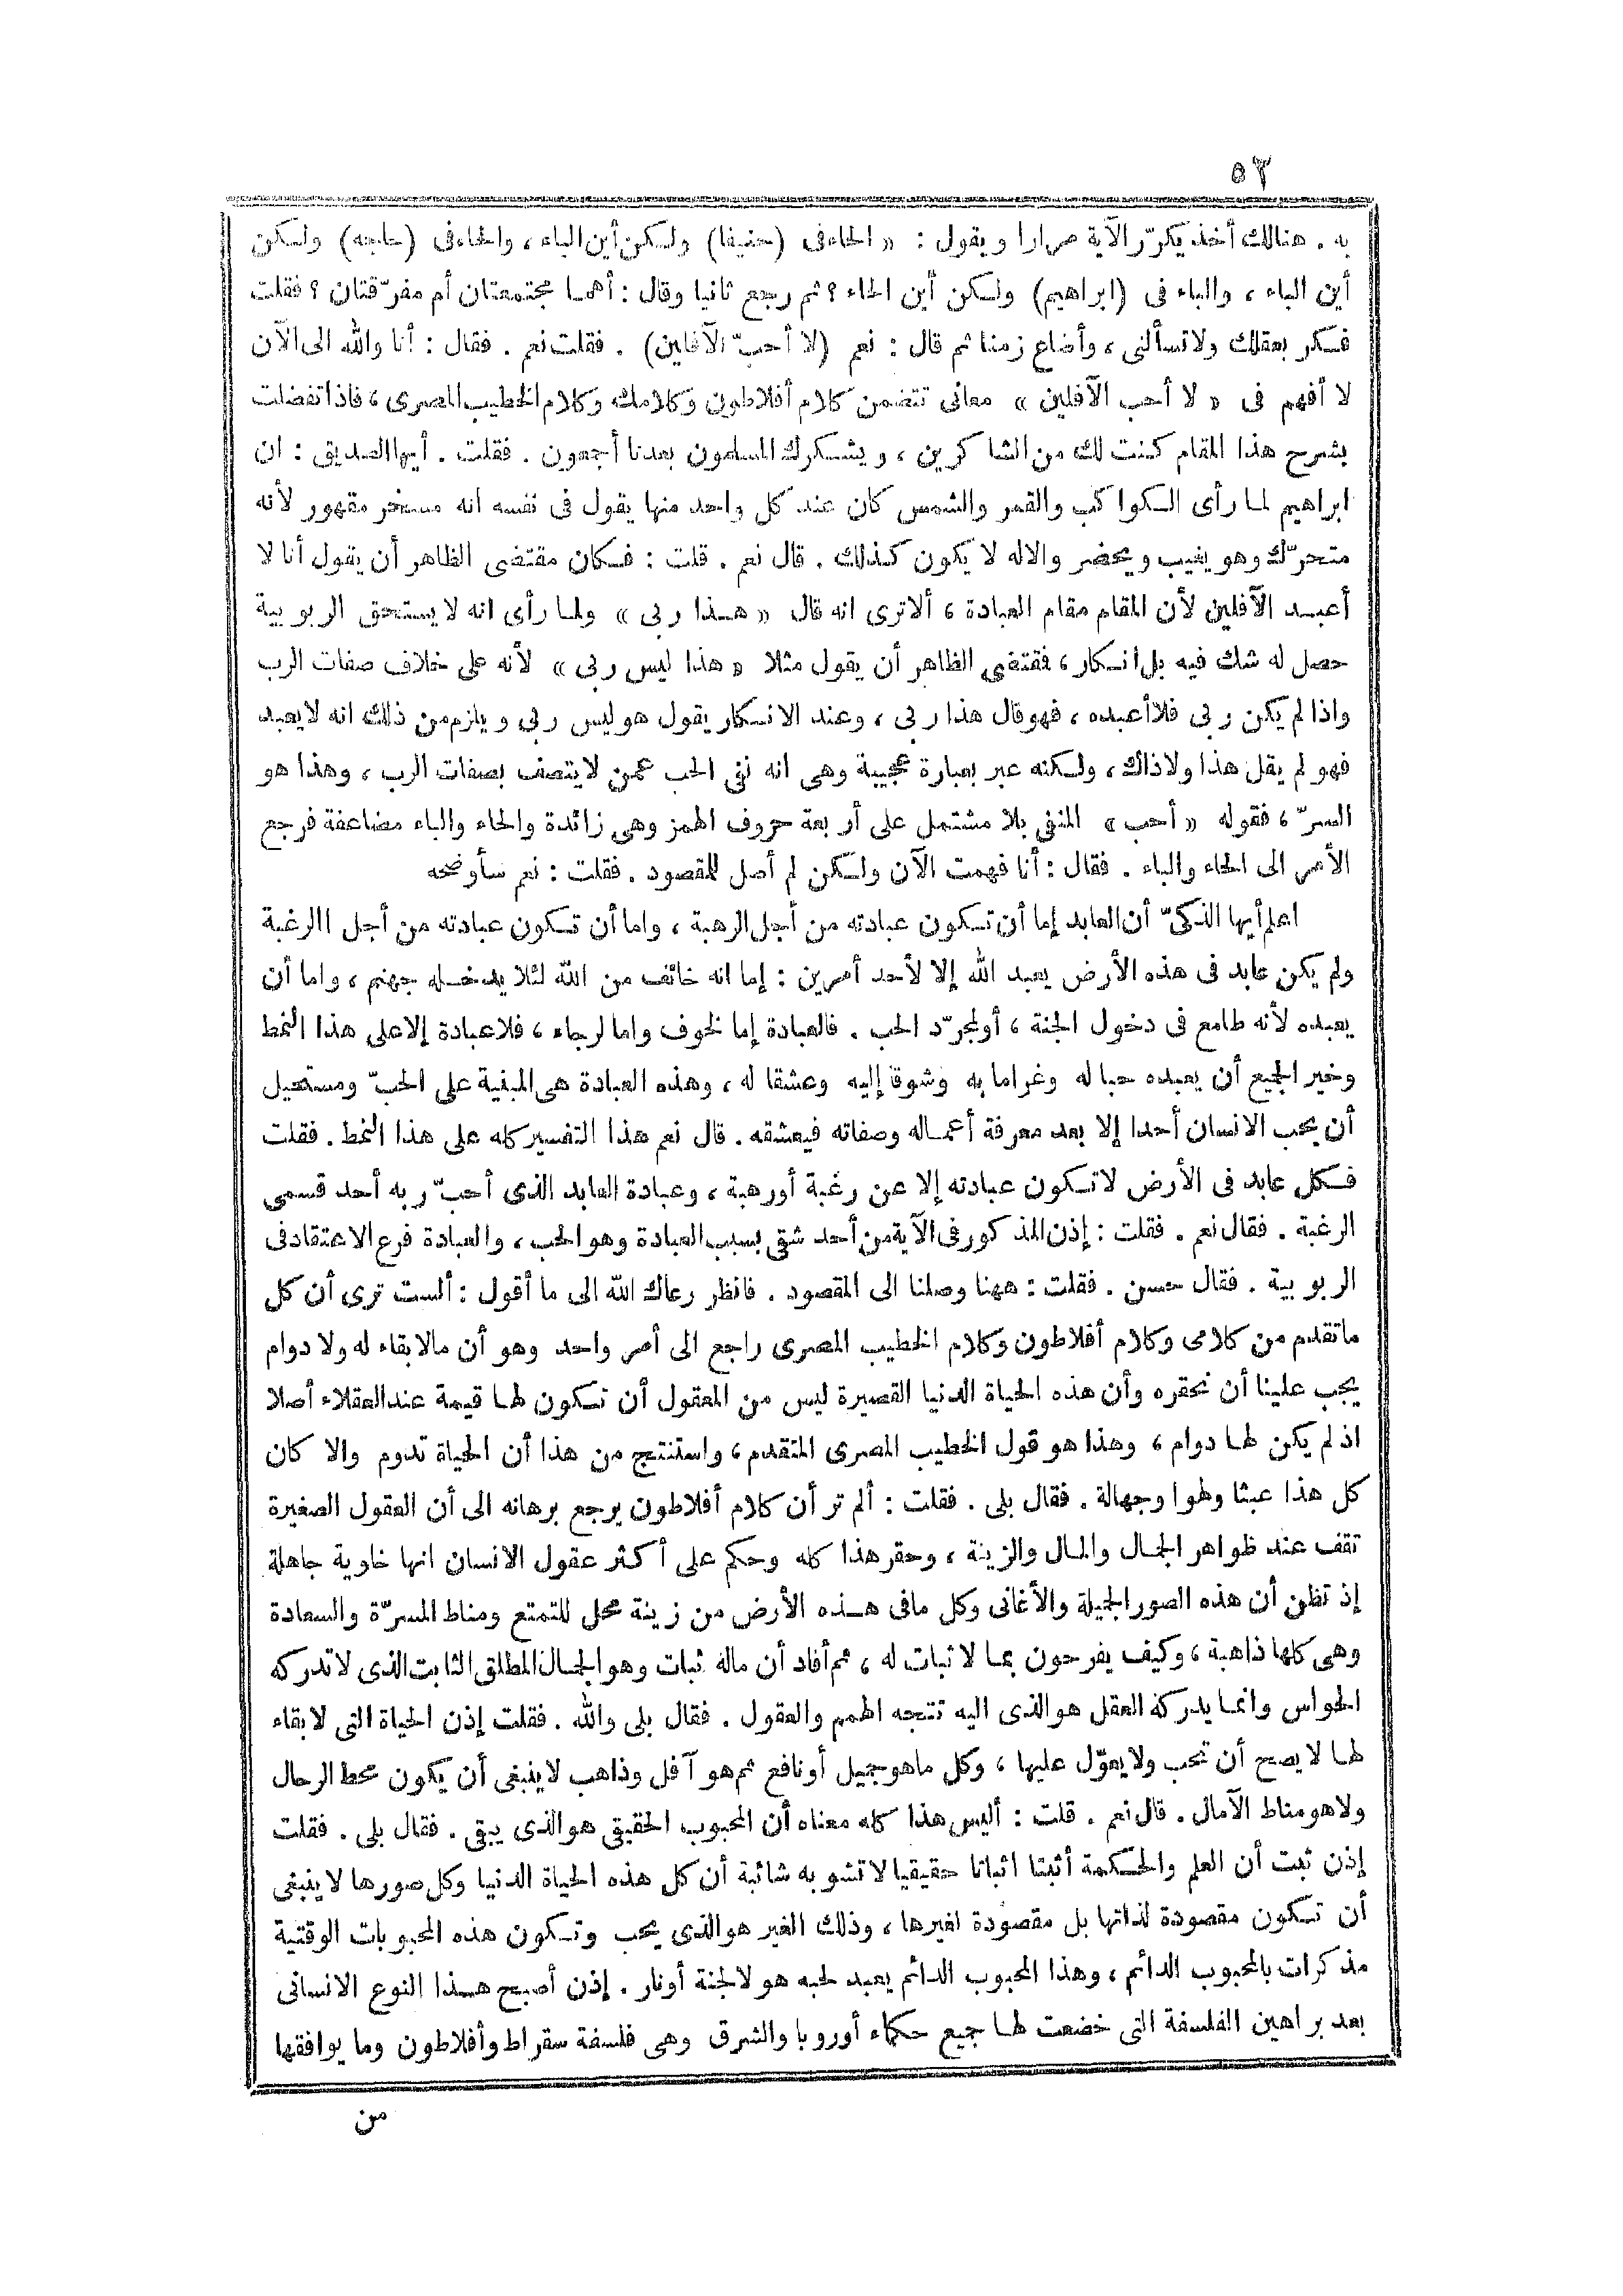 ٥٢
به . هنالك أخذ يكرّر الآية مرارا ويقول : « الحاء فى (حنيفا) ولكن أين الباء ، والحاء فى (حاجه) ولكن
أين الباء ، والباء فى (ابراهيم) ولكن أين الحاء ؟ ثم رجع ثانيا وقال : أهما مجتمعتان أم مفرّقتان ؟ فقلت
فكر بعقلك ولا تسألنى ، وأضاع زمنا ثم قال : نعم (لا أحبّ الآفلين) . فقلت نعم . فقال : أنا والله الى الآن
لا أفهم فى « لا أحب الآفلين » معانى تتضمن كلام أفلاطون وكلامك وكلام الخطيب المصرى ، فاذا تفضلت
بشرح هذا المقام كنت لك من الشاكرين ، ويشكرك المسلمون بعدنا أجمعون . فقلت . أيها الصديق : ان
ابراهيم لما رأى الكواكب والقمر والشمس كان عند كل واحد منها يقول فى نفسه انه مسخر مقهور لأنه
متحرّك وهو يغيب ويحضر والاله لا يكون كذلك . قال نعم . قلت : فكان مقتضى الظاهر أن يقول أنا لا
أعبد الآفلين لأن المقام مقام العبادة ، ألا ترى انه قال « هذا ربى » ولما رأى انه لا يستحق الربوبية
حصل له شك فيه بل انكار ، فمقتضى الظاهر أن يقول مثلا « هذا ليس ربى » لأنه على خلاف صفات الرب
واذا لم يكن ربى فلا أعبده ، فهو قال هذا ربى ، وعند الانكار يقول هو ليس ربى ويلزم من ذلك انه لا يعبد
فهو لم يقل هذا ولا ذاك ، ولكنه عبر بعبارة عجيبة وهى انه نفى الحب عمن لا يتصف بصفات الرب ، وهذا هو
السرّ ، فقوله « أحب » المنفى بلا مشتمل على أربعة حروف الهمز وهى زائدة والحاء والباء مضاعفة فرجع
الأمر الى الحاء والباء . فقال : أنا فهمت الآن ولكن لم أصل للمقصود . فقلت : نعم سأوضحه
اعلم أيها الذكىّ أن العابد إما أن تكون عبادته من أجل الرهبة ، واما أن تكون عبادته من أجل االرغبة
ولم يكن عابد فى هذه الأرض يعبد الله إلا لأحد أمرين : إما انه خائف من الله لئلا يدخله جهنم ، واما أن
يعبده لأنه طامع فى دخول الجنة ، أو لمجرّد الحب . فالعبادة إما لخوف واما لرجاء ، فلا عبادة إلا على هذا النمط
وخير الجميع أن يعبده حبا له وغراما به وشوقا إليه وعشقا له ، وهذه العبادة هى المبنية على الحبّ ومستحيل
أن يحب الانسان أحدا إلا بعد معرفة أعماله وصفاته فيعشقه . قال نعم هذا التفسير كله على هذا النمط . فقلت
فكل عابد فى الأرض لا تكون عبادته إلا عن رغبة أو رهبة ، وعبادة العابد الذى أحبّ ربه أحد قسمى
الرغبة . فقال نعم . فقلت : إذن المذكور فى الآية من أحد شقى بسبب العبادة وهو الحب ، والعبادة فرع الاعتقاد فى
الربوبية . فقال حسن . فقلت : ههنا وصلنا الى المقصود . فانظر رعاك الله الى ما أقول : ألست ترى أن كل
ما تقدم من كلامى وكلام أفلاطون وكلام الخطيب المصرى راجع الى أمر واحد وهو أن مالا بقاء له ولا دوام
يجب علينا أن نحقره وأن هذه الحياة الدنيا القصيرة ليس من المعقول أن تكون لها قيمة عند العقلاء أصلا
اذ لم يكن لها دوام ، وهذا هو قول الخطيب المصرى المتقدم ، واستنتج من هذا أن الحياة تدوم والا كان
كل هذا عبثا ولهوا وجهالة . فقال بلى . فقلت : ألم تر أن كلام أفلاطون يرجع برهانه الى أن العقول الصغيرة
تقف عند ظواهر الجمال والمال والزينة ، وحقر هذا كله وحكم على أكثر عقول الانسان انها خاوية جاهلة
إذ تظن أن هذه الصور الجميلة والأغانى وكل ما فى هذه الأرض من زينة محل للتمتع ومناط المسرّة والسعادة
وهى كلها ذاهبة ، وكيف يفرحون بما لا ثبات له ، ثم أفاد أن ماله ثبات وهو الجمال المطلق الثابت الذى لا تدركه
الحواس وانما يدركه العقل هو الذى اليه تتجه الهمم والعقول . فقال بلى والله . فقلت إذن الحياة التى لا بقاء
لها لا يصح أن تحب ولا يعوّل عليها ، وكل ما هو جميل أو نافع ثم هو آفل وذاهب لا ينبغى أن يكون محط الرحال
ولا هو مناط الآمال . قال نعم . قلت : أليس هذا كله معناه أن المحبوب الحقيقى هو الذى يبقى . فقال بلى . فقلت
إذن ثبت أن العلم والحكمة أثبتا اثباتا حقيقيا لا تشوبه شائبة أن كل هذه الحياة الدنيا وكل صورها لا ينبغى
أن تكون مقصودة لذاتها بل مقصودة لغيرها ، وذلك الغير هو الذى يحب وتكون هذه المحبوبات الوقتية
مذكرات بالمحبوب الدائم ، وهذا المحبوب الدائم يعبد لحبه هو لا لجنة أو نار . إذن أصبح هذا النوع الانسانى
بعد براهين الفلسفة التى خضعت لها جميع حكماء أوروبا والشرق وهى فلسفة سقراط وأفلاطون وما يوافقها
من